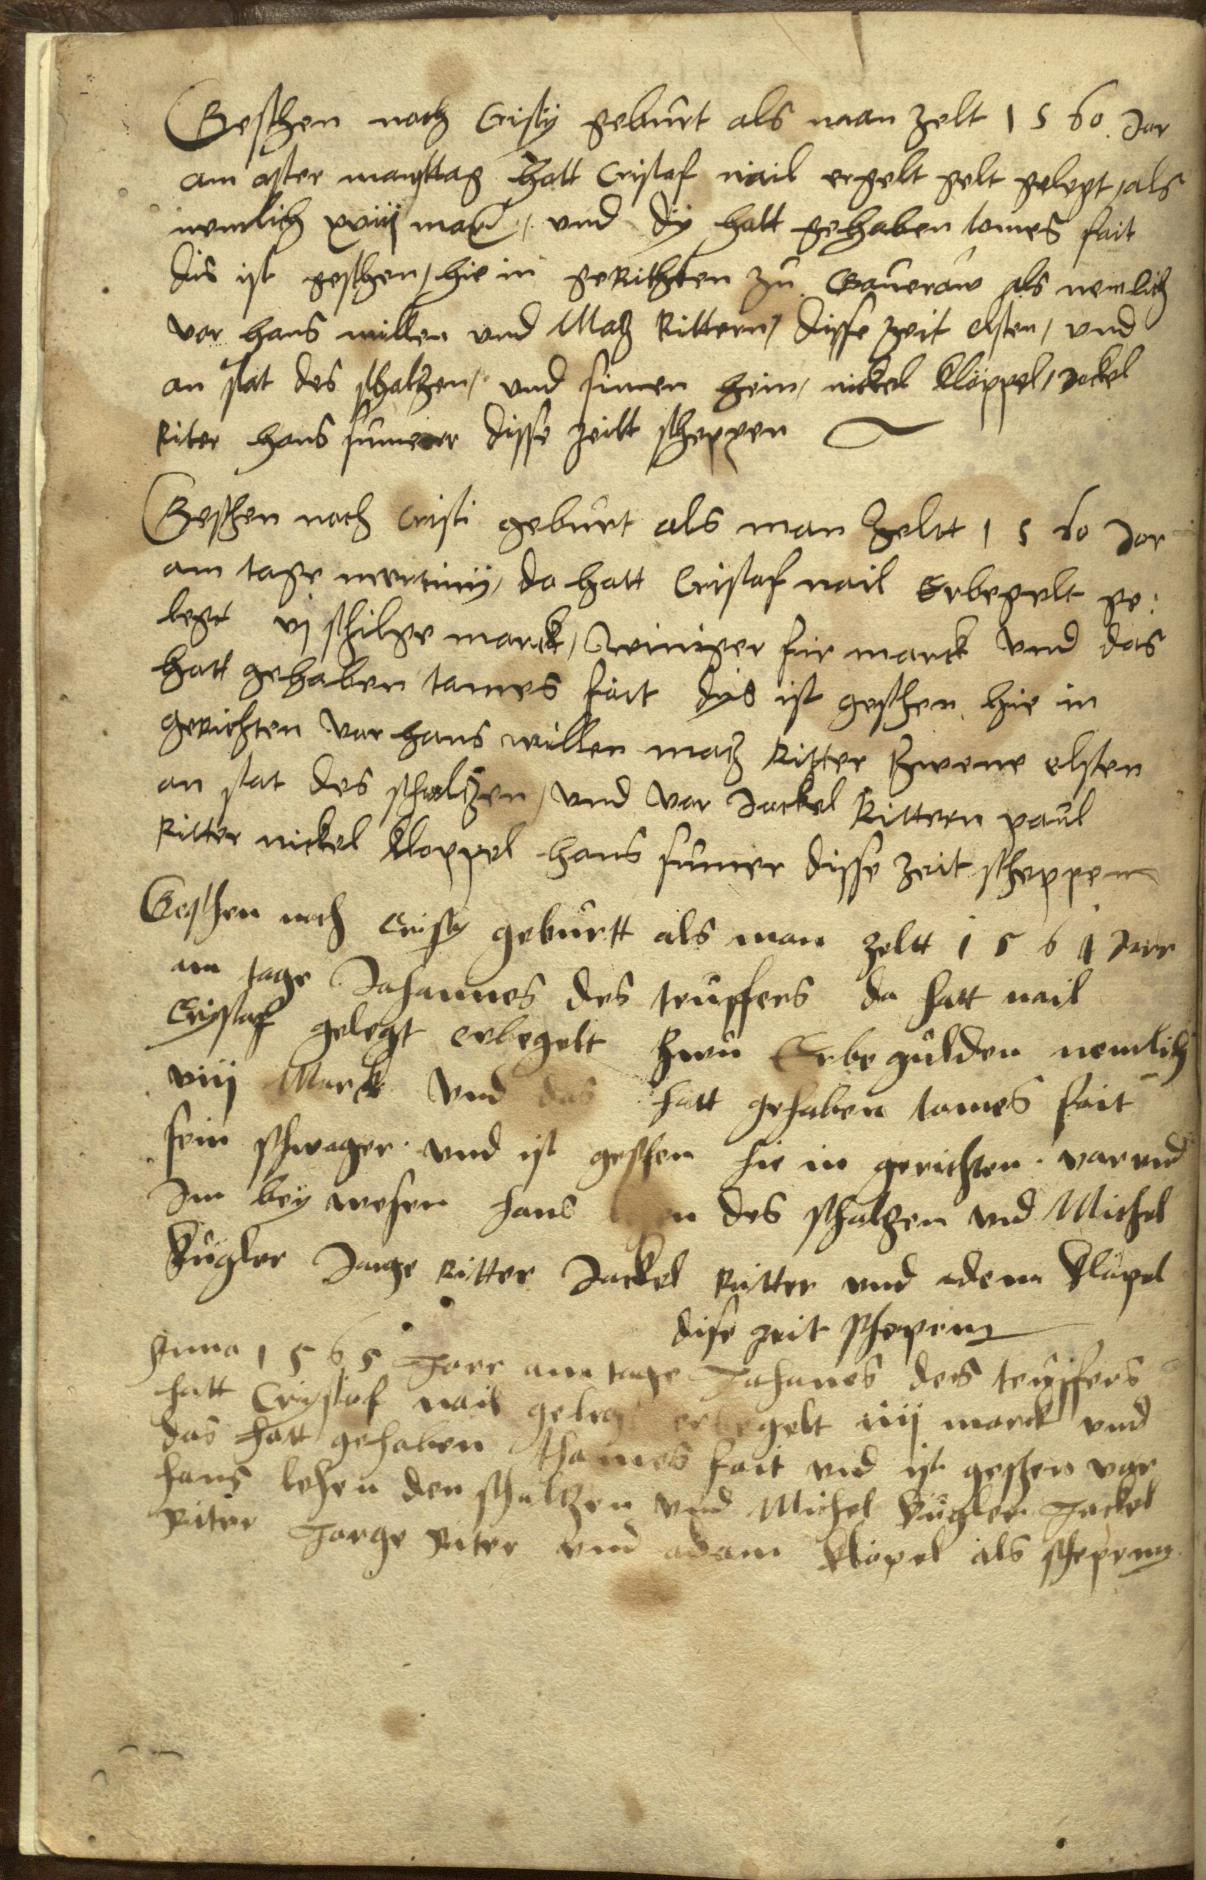 Geschen nach Cristy geburt als man zelt 1560 Jar
am oster manttag hatt Cristof nail ergelt gelt gelegt / als
nemlich xviij marck / und dy hatt gehaben tomes fait
dis ist geschen / hie in geRichten zu Gaueraw als nemlich
vor hans willen und Matz Rittern / disse zeit elsten / und
an stat des scholtzen / und simen hein / nickel klöppel / Jockel
Riter hans sumerer disse zeitt scheppen
Geschen noch Cristi geburt als man Zeltt 1560 Jor
am tage mertiniij / do hatt Cristof nail Erbegelt ge:
legt vj schilge marck / winiger fir marck und das
hatt gehaben tomes fait dys ist geschen hie in
gerichten vor hans willen matz Ritter Zwene elsten
an stat des scholtzen / und vor Jockel Rittern paul
Ritter nickel kloppel hans sumer disse zeit scheppen
Geschen noch Cristy geburtt als man zeltt 1561 Jare
am tage Johannes des teuffers do hatt nail
Cristof gelegt erbegelt Zwu Erbegulden nemlich
viij Marck und das hatt gehaben tomes fait
sein schwager und ist geschen hie in gerichten vor und
Im bey wesen hans des scholtzen und Michel
kugler Jorge Ritter Jockel Ritter und adem klöpel
dise zeit schepen
Anno 1565 Jare am tage Johanes des teuffers
hatt Cristof nail gelegt erbegelt iiij marck und
das hatt gehaben thomes fait und ist geschen vor
hans lehen den schultzen und Michel kugler Jockel
Riter Jorge Riter und adam klöpel als schepenn